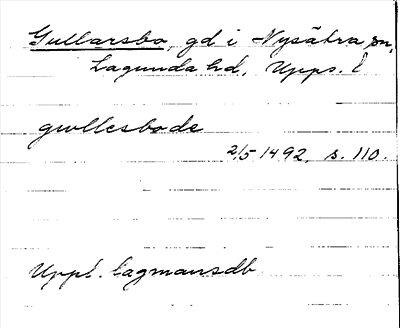 Gullarsbo, gd i Nysätra sn,
Lagunda hd, Upps. l
gwllesbode
2/5 1492, s. 110.
Uppl. lagmansdb